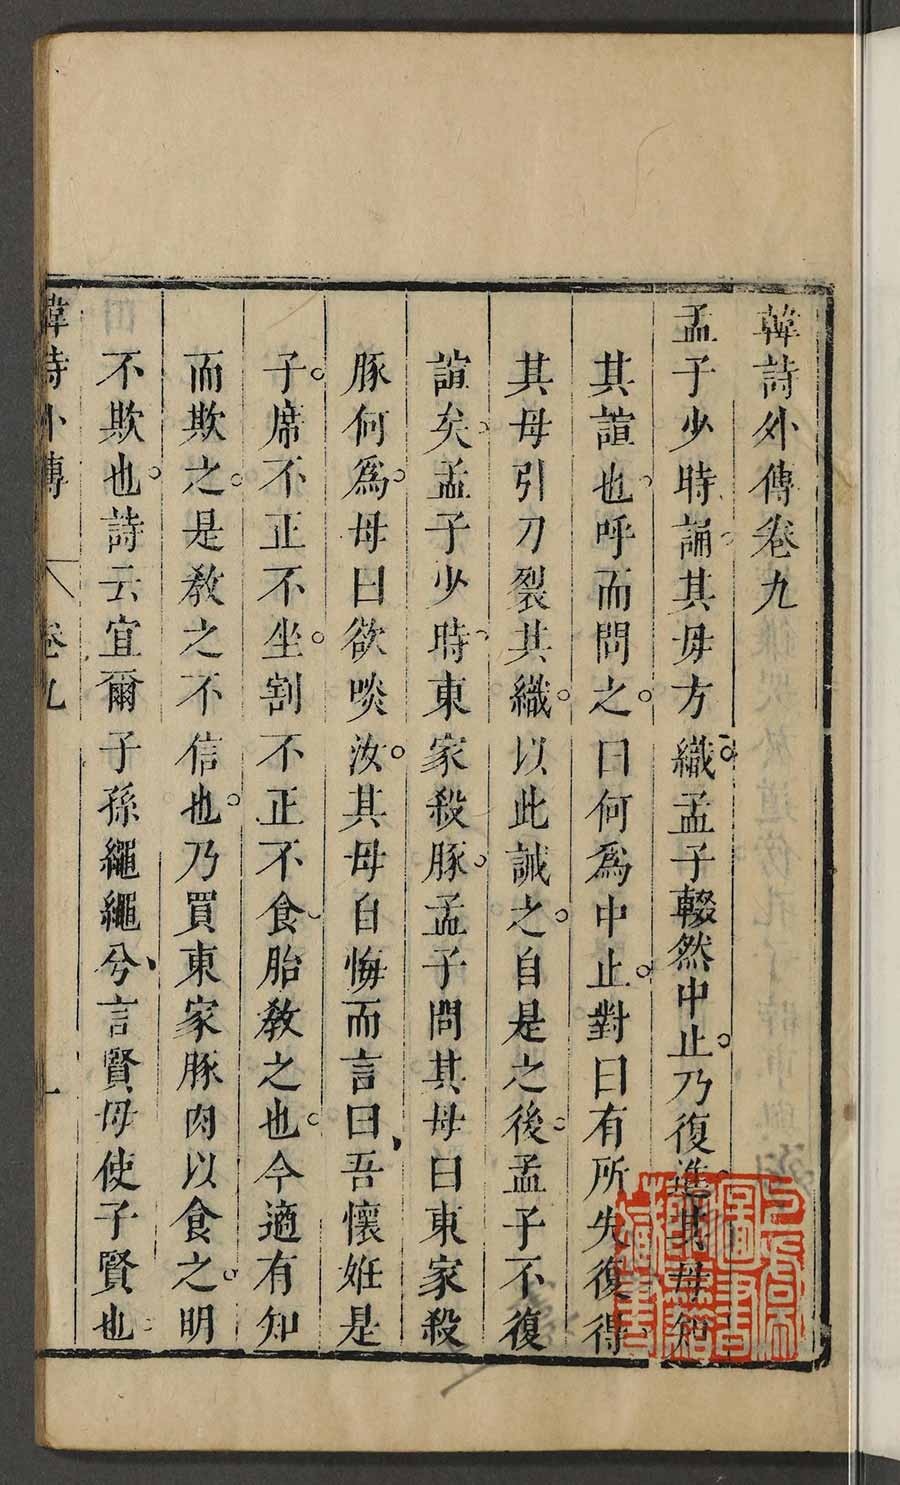 韓詩外傳卷九
孟子少時誦其母方織孟子輟然中止乃復進其母知
其諠也呼而問之曰何爲中止對曰有所失復得
其母引刀裂其織以此誡之自是之後孟子不復
諠矣孟子少時東家殺豚孟子問其母曰東家殺
豚何爲母曰欲啖汝其母自悔而言曰吾懷姙是
子席不正不坐割不正不食胎教之也今適有知
而欺之是教之不信也乃買東家豚肉以食之明
不欺也詩云宜爾子孫繩繩兮言賢母使子賢也
韓詩外傳 卷九 一